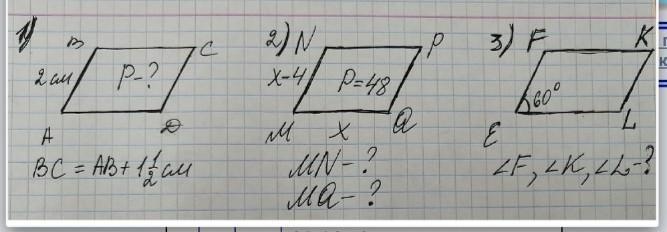 1) B C
2 см P-?
A D
BC = AB + 1 1/2 см
2) N P
x-4 P=48
M x Q
MN-?
MQ-?
3) F K
60°
E L
∠F, ∠K, ∠L-?